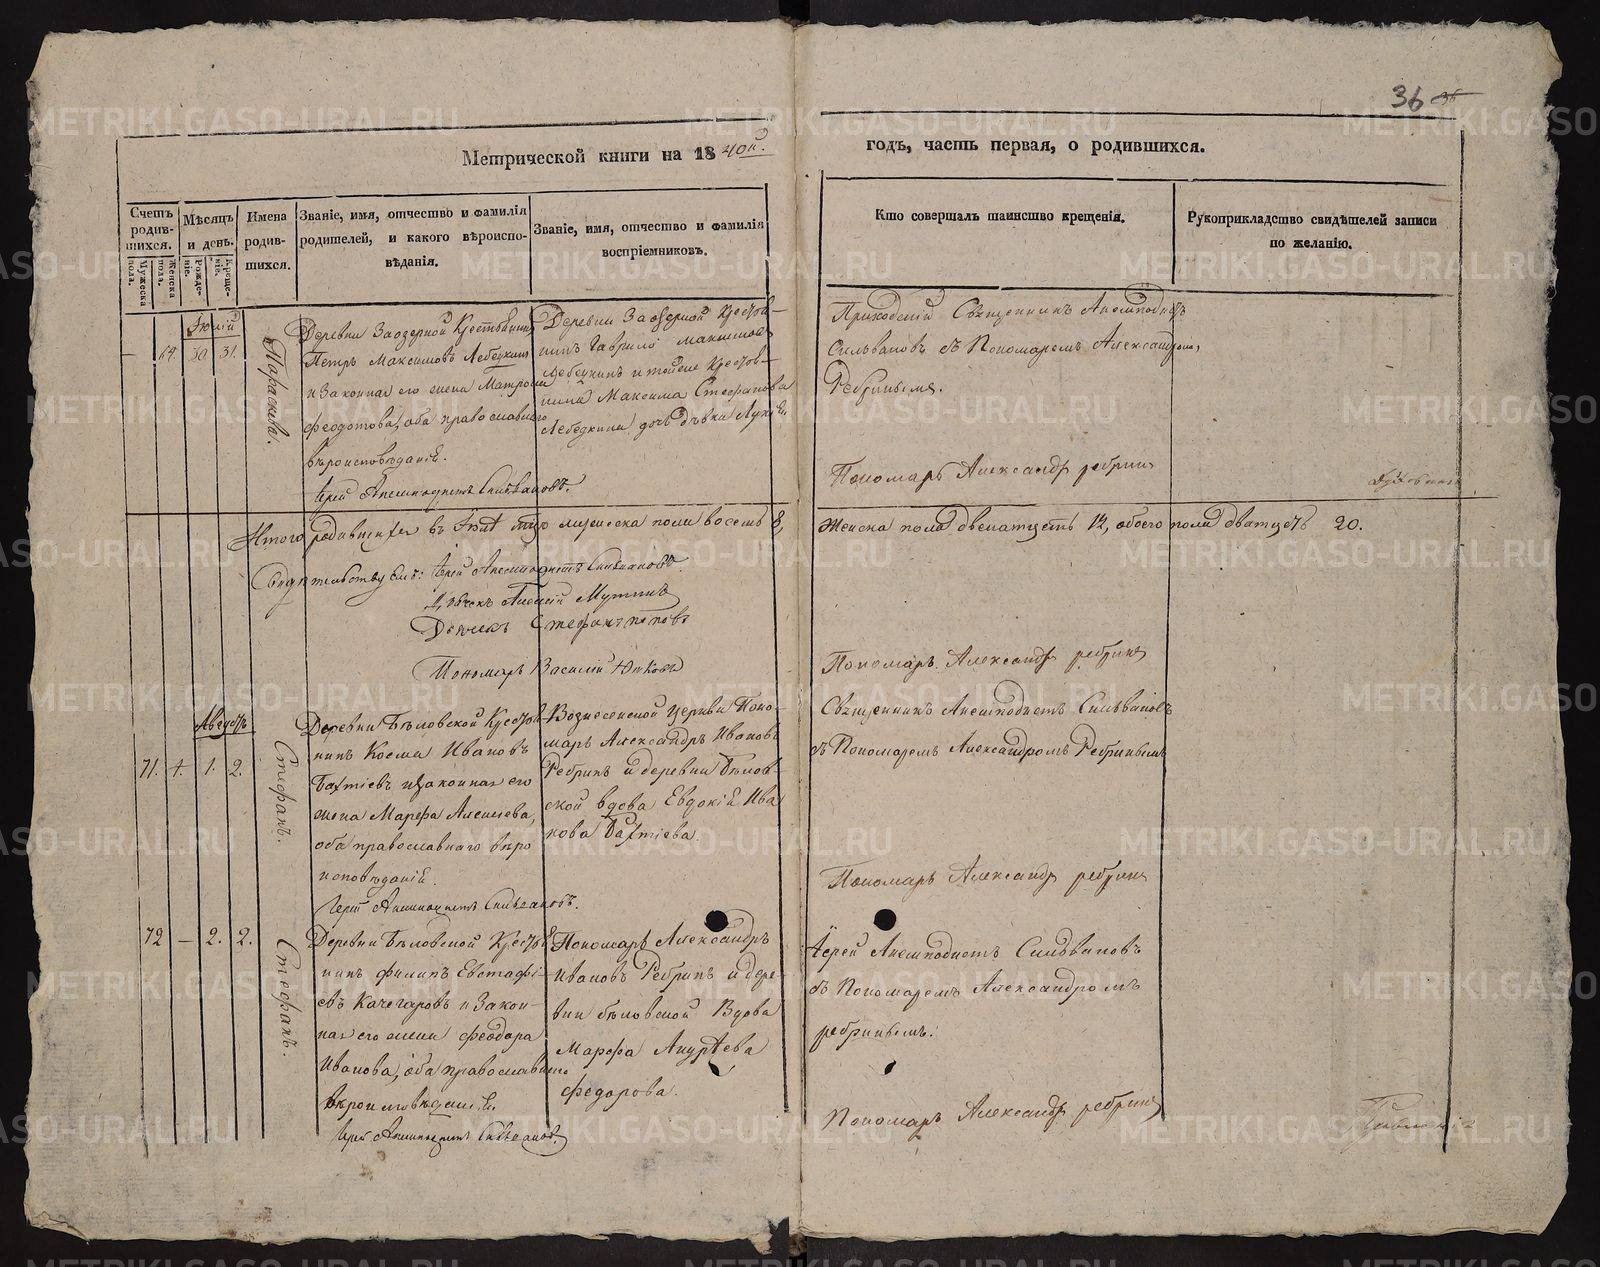 36 36
Метрической книги на 1840й.
годъ, часть первая, о родившихся.
Счетъ родив-шихся.
Мужеска пола.
Женска пола.
Мѣсяцъ и день.
Рожде-ніе.
Креще-ніе.
Имена родив-шихся.
Званіе, имя, отчество и фамилія
родителей, и какого вѣроиспо-
вѣданія.
Званіе, имя, отчество и фамилія
воспріемниковъ.
Кто совершалъ таинство крещенія.
Рукоприкладство свидѣтелей записи
по желанію.
Іюлій
— 64. 30. 31.
Параскева.
Деревни Заозерной Крестьянинъ
Петръ Максимовъ Лебедкинъ
и законная его жена Матрона
Феодотова, оба православнаго
вѣроисповѣданія.
Іерей Анемподистъ Сильвановъ.
Деревни Заозерной Крестья-
нинъ Гаврило Максимовъ
Лебедкинъ и тойже Крестья-
нина Максима Стефанова
Лебедкина дочь дѣвка
Приходскій Священникъ Анемподистъ
Сильвановъ съ Пономаремъ Александромъ
Ребринымъ.
Пономарь Александр ребринъ
Итого родившихся въ Іюлѣ мужеска пола восемь 8,
Женска пола двенатцеть 12, обоего пола дватцеть 20.
Свидѣтельствуемъ: Іерей Анемподистъ Сильвановъ
Дьячекъ Стефанъ поповъ
Пономарь Василій
Пономарь Александр ребринъ
Августъ
71. + 1. 2.
Стефанъ.
Деревни Бѣловской Крестья-
нинъ Косма Ивановъ
Бахтіевъ и законная его
жена Марфа Алексѣева,
оба православнаго вѣро
исповѣданія.
Іерей Анемподистъ Сильвановъ.
Вознесенской церкви Поно-
марь Александръ Ивановъ
Ребринъ и деревни Бѣлов-
ской вдова Евдокія Ива
нова Бахтіева
Священникъ Анемподистъ Сильвановъ
съ Пономаремъ Александромъ Ребринымъ
Пономарь Александр ребринъ
72 — 2. 2.
Стефанъ.
Деревни Бѣловской Крестья
нинъ Филипъ Евстафі-
евъ Качегаровъ и Закон-
ная его жена Феодора
Иванова, оба православнаго
вѣроисповѣданія.
Іерей Анемподистъ Сильвановъ.
Пономарь Александръ
Ивановъ Ребринъ и дере-
вни бѣловской Вдова
Марфа Андрѣева
Федорова.
Іерей Анемподистъ Сильвановъ
съ Пономаремъ Александромъ
ребринымъ.
Пономарь Александр ребринъ
METRIKI.GASO-URAL.RU